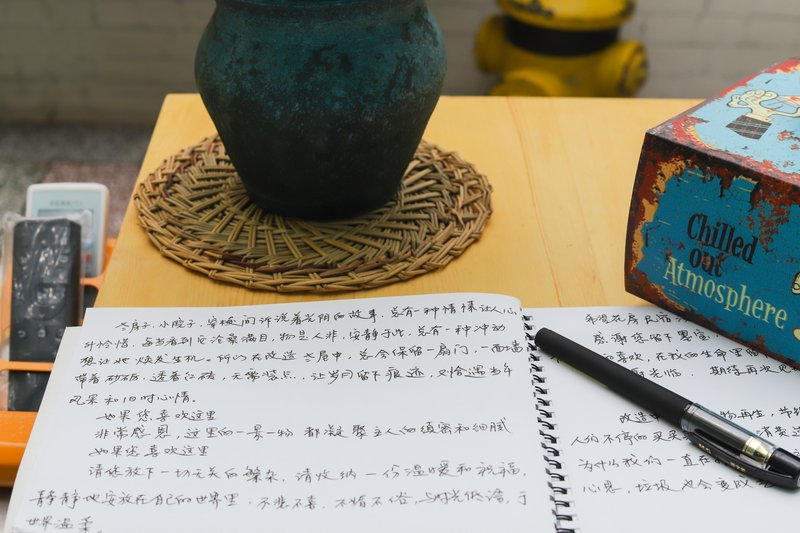 Chilled
out
Atmosphere
老房子,小院子,穿梭间诉说着光阴的故事,总有一种情愫让人心
升恰惜,每当看到它沧桑满目,物是人非,安静于此,总有一种冲动
想让她焕发生机。所以在改造老屋中,总会保留一扇门,一面墙
带着砂砾,透着红砖,无需装点,让岁月留下痕迹,又恰遇当年
风采和旧时心情。
如果您喜欢这里
非常感恩,这里的一景一物都凝聚主人的缜密和细腻
如果您喜欢这里
请您放下一切无关的繁杂,请收纳一份温暖和祝福,
静静地安放在自己的世界里,不悲不喜,不惰不俗,与时光低语,于
世界温柔。
希望花房民宿
感谢您留下恩宠
和喜欢,在我的生命里的
光临,期待再次见
改造中 物再生,
人们不停的买买 消费
为什么我们一直在
心思,垃圾也会变成